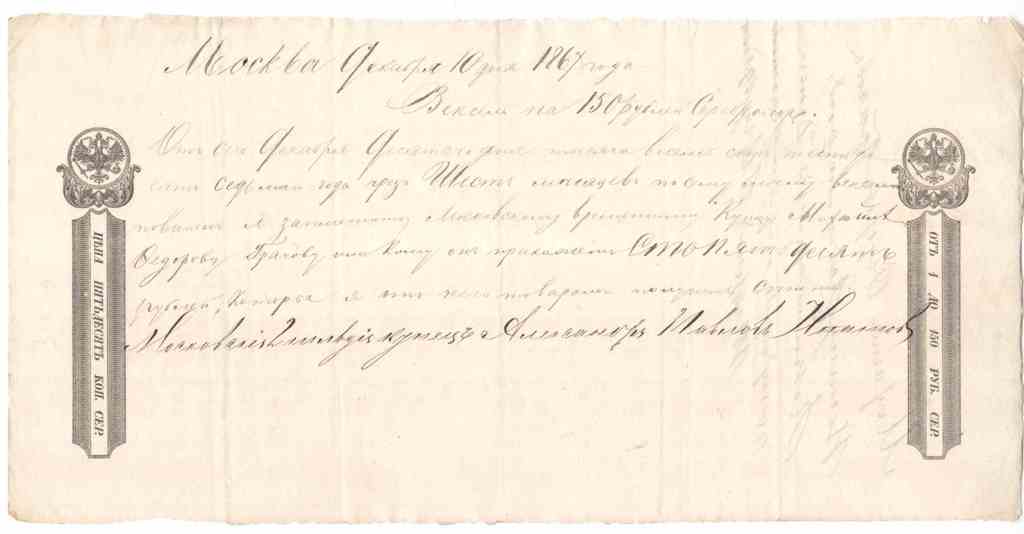 Москва Декабря 10 дня 1867 года
Вексель на 150 рублей Серебромъ.
Отъ сего Декабря Десятого дня тысяча восемь сотъ шестьде-
сятъ седьмаго года чрезъ Шесть месяцевъ по сему моему векселю
повиненъ я заплатить Московскому временному Купцу Михайле
Федорову Грачову или кому онъ прикажетъ Сто пятьдесятъ
рублей, которые я отъ него товаромъ получилъ сполна.
Московский 2 гильдіи купецъ Александръ Павловъ
ЦѢНА ПЯТЬДЕСЯТЪ КОП. СЕР.
ОТЪ 1 ДО 150 РУБ. СЕР.